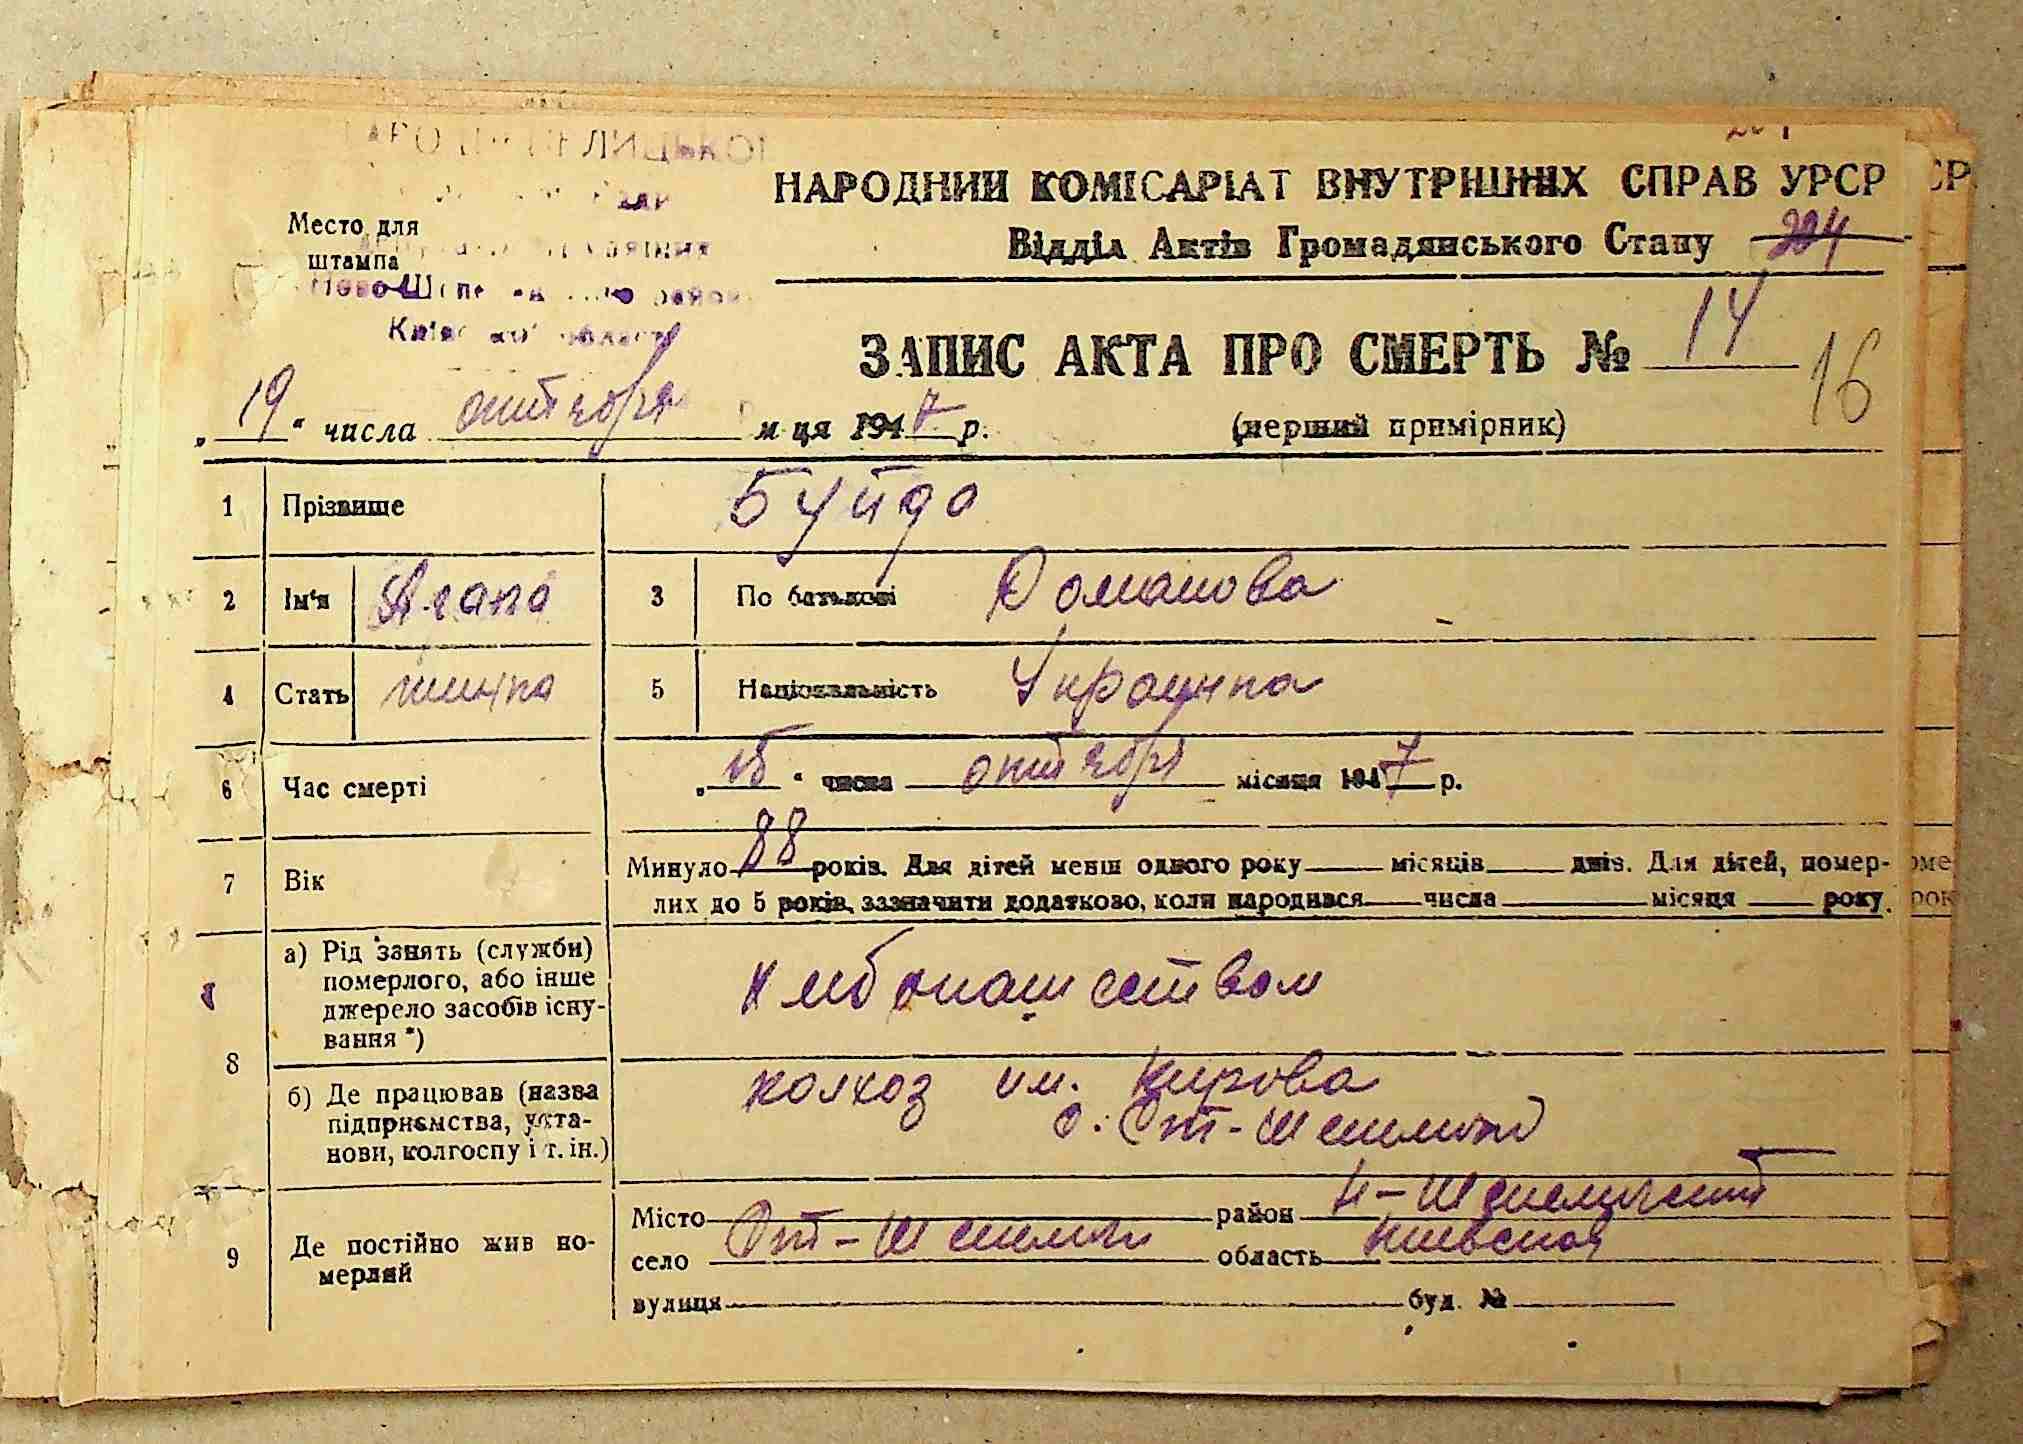 НАРОДНИЙ КОМІСАРІАТ ВНУТРІШНІХ СПРАВ УРСР
Место для штампа
Відділ Актів Громадянського Стану 204
ЗАПИС АКТА ПРО СМЕРТЬ № 14
16
„19“ числа октября м-ця 1947 р.
(перший примірник)
1 Прізвище Буйда
2 Ім'я Агапа 3 По батькові Романова
4 Стать 5 Національність Украинка
6 Час смерті „15“ числа октября місяця 1947 р.
7 Вік Минуло 88 років. Для дітей менш одного року місяців днів. Для дітей, померлих до 5 років, зазначити додатково, коли народився числа місяця року.
8 а) Рід занять (служби) померлого, або інше джерело засобів існування *) хлебопашеством
б) Де працював (назва підприємства, установи, колгоспу і т. ін.) колхоз им. Кирова
с. Ст-Шепеличи
9 Де постійно жив померлий Місто район Н-Шепелический
село Ст-Шепеличи область Киевская
вулиця буд. №